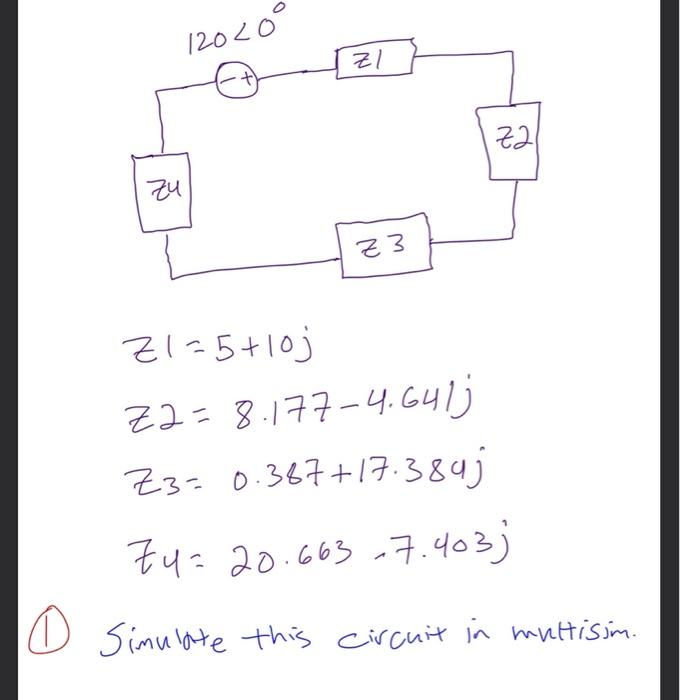 120<0°
- +
Z1
Z2
Z4
Z3
Z1=5+10j
Z2= 8.177-4.641j
Z3= 0.387+17.384j
Z4= 20.663-7.403j
① Simulate this circuit in multisim.